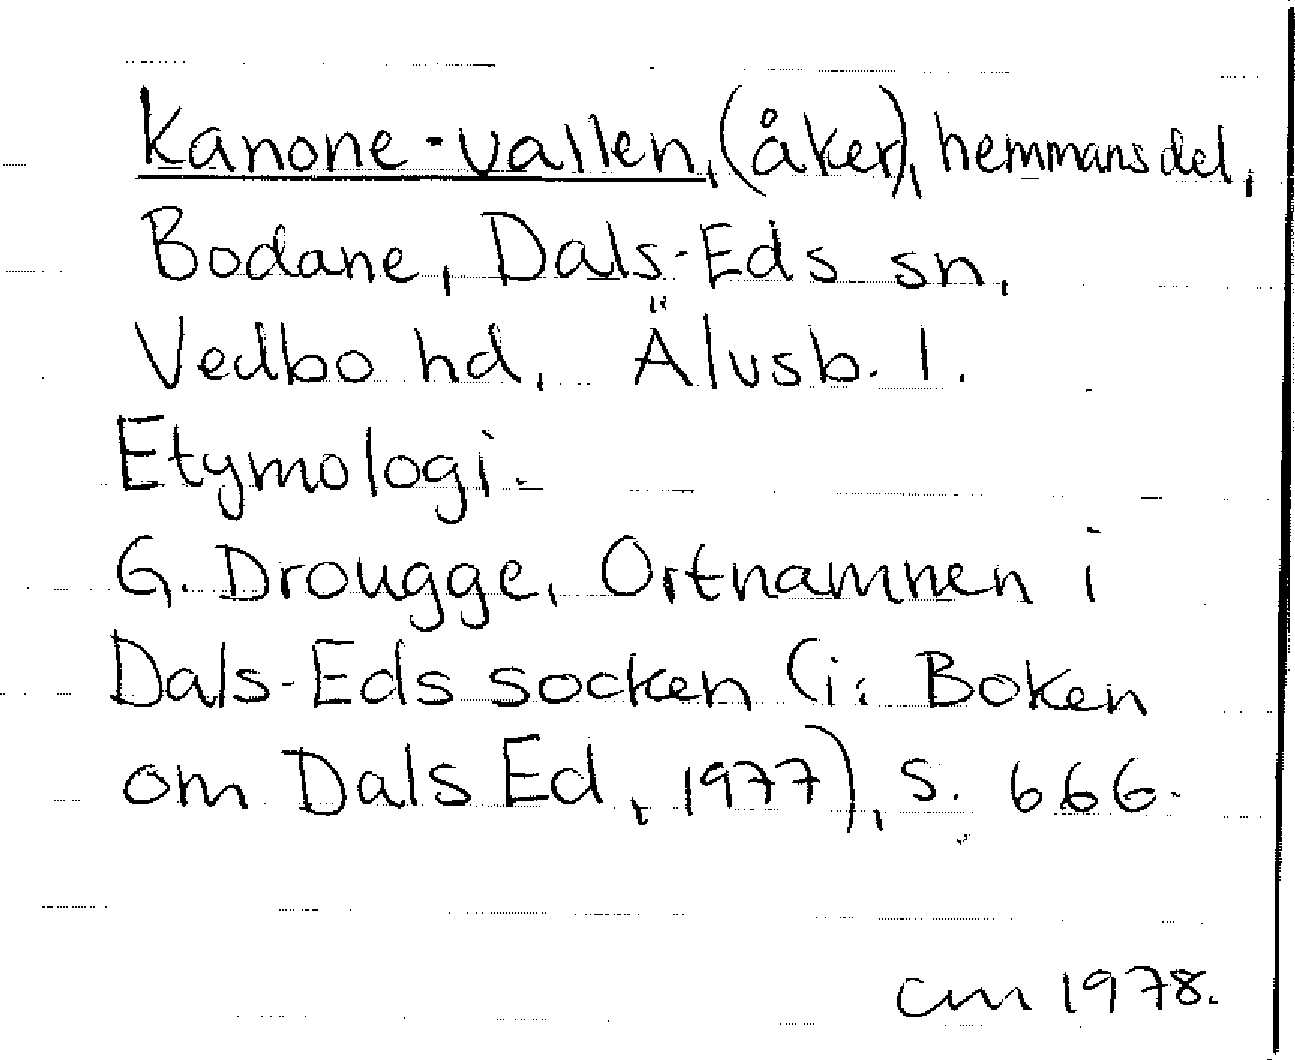 Kanone-vallen, (åker), hemmansdel,
Bodane, Dals-Eds sn,
Vedbo hd, Älvsb. l.
Etymologi.
G. Drougge, Ortnamnen i
Dals-Eds socken (i: Boken
om Dals Ed, 1977), s. 666.
cm 1978.